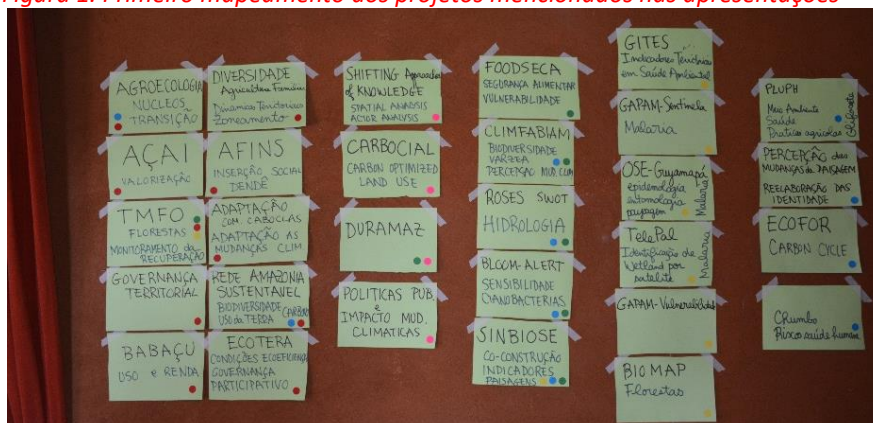 Figura 1. Primeiro mapeamento dos projetos mencionados nas apresentações
AGROECOLOGIA
NÚCLEOS
TRANSIÇÃO
AÇAI
VALORIZAÇÃO
TMFO
FLORESTAS
MONITORAMENTO da
RECUPERAÇÃO
GOVERNANÇA
TERRITORIAL
BABAÇU
USO e RENDA
DIVERSIDADE
Agricultura Familiar
Dinâmicas Territoriais
Zoneamento
AFINS
INSERÇÃO SOCIAL
DENDÊ
ADAPTAÇÃO
COM CABOCLAS
ADAPTAÇÃO AS
MUDANÇAS CLIM
REDE AMAZONIA
SUSTENTAVEL
BIODIVERSIDADE
USO da TERRA CARBONO
ECOTERA
CONDIÇÕES
GOVERNANÇA
PARTICIPATIVO
SHIFTING
of KNOWLEDGE
SPATIAL ANALYSIS
ACTOR ANALYSIS
CARBOCIAL
CARBON OPTIMIZED
LAND USE
DURAMAZ
POLITICAS PUB.
e
IMPACTO MUD.
CLIMATICAS
FOODSECA
SEGURANÇA ALIMENTAR
VULNERABILIDADE
CLIMFABIAM
BIODIVERSIDADE
VARZEA
PERCEPSÃO MUD. CLIM
ROSES SWOT
HIDROLOGIA
BLOOM-ALERT
SENSIBILIDADE
CIANOBACTERIAS
SINBIOSE
CO-CONSTRUÇÃO
INDICADORES
PAISAGENS
GITES
Indicadores Territoriais
em Saúde Ambiental
GAPAM-Sentinela
Malaria
OSE-Guyamapá
epidemologia
entomologia
paysagem
Malaria
TelePal
Identificação de
Wetland por
satelite
Malaria
GAPAM-Vulnerabilidade
BIOMAP
Florestas
PLUPH
Meio Ambiente
Saúde
Praticas agricolas
PERCEPÇÃO das
MUDANÇAS da PAISAGEM
REELABORAÇÃO DAS
IDENTIDADE
ECOFOR
CARBON CYCLE
CRumbo
Riscos saúde humana